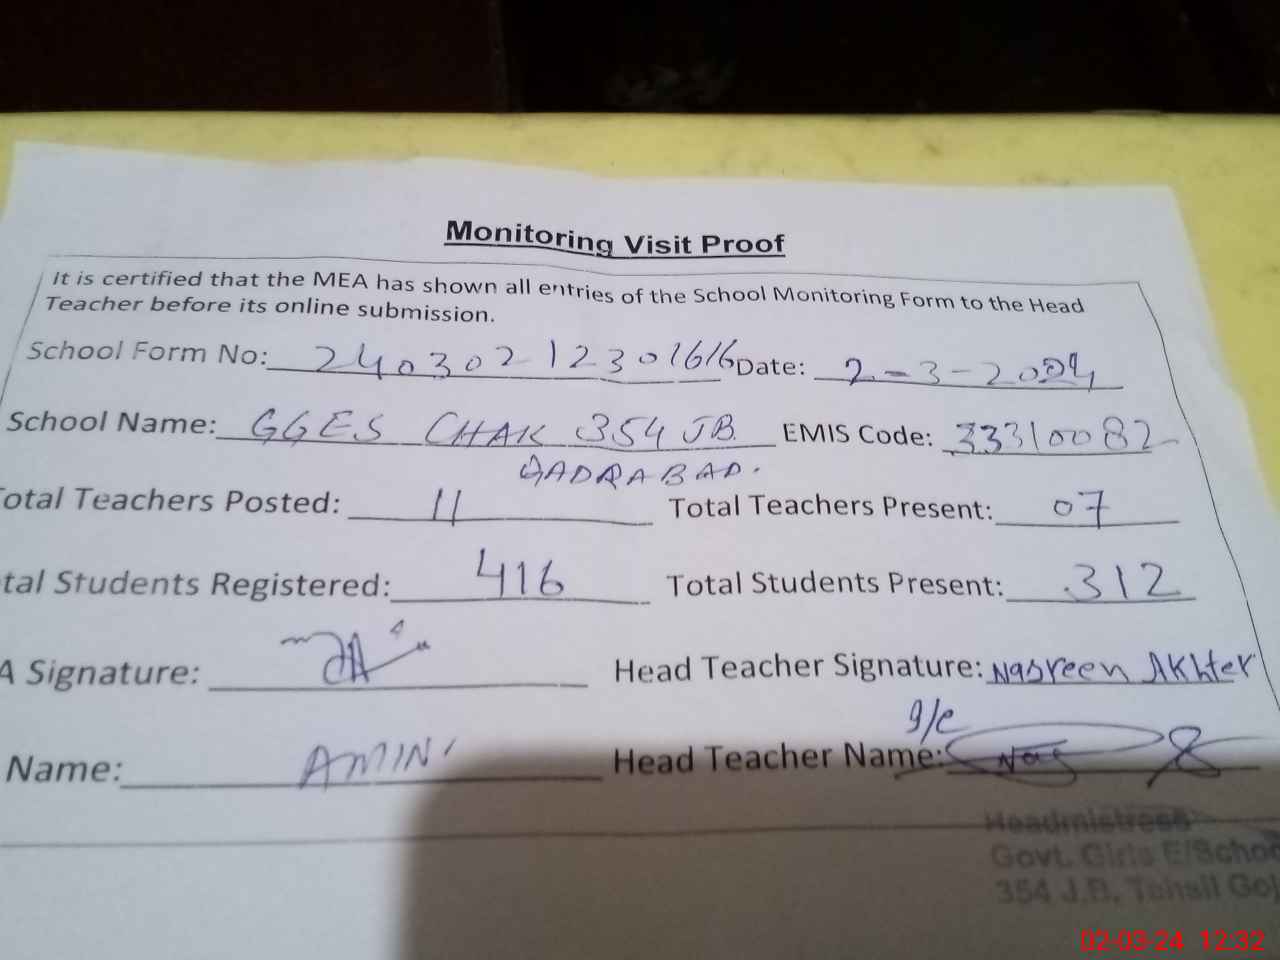 Monitoring Visit Proof
It is certified that the MEA has shown all entries of the School Monitoring Form to the Head
Teacher before its online submission.
School Form No: 24030212301616 Date: 2-3-2024
School Name: GGES CHAK 354 JB EMIS Code: 33310082
QADRABAD.
otal Teachers Posted: 11 Total Teachers Present: 07
tal Students Registered: 416 Total Students Present: 312
A Signature: Head Teacher Signature: Nasreen Akhter
g/e
Name: AMIN Head Teacher Name:
Headmistress
Govt. Girls E/Schoo
354 J.B. Tehsil Goj
02-03-24 12:32